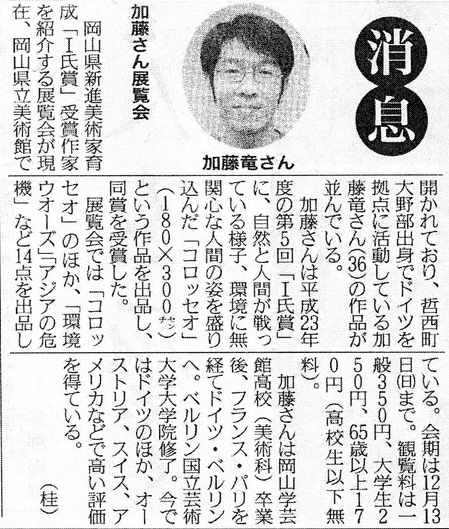 消息
加藤竜さん
加藤さん展覧会
岡山県新進美術家育
成「Ⅰ氏賞」受賞作家
を紹介する展覧会が現
在、岡山県立美術館で
開かれており、哲西町
大野部出身でドイツを
拠点に活動している加
藤竜さん(36)の作品が
並んでいる。
加藤さんは平成23年
度の第5回「Ⅰ氏賞」
に、自然と人間が戦っ
ている様子、環境に無
関心な人間の姿を盛り
込んだ「コロッセオ」
(180×300㌢)
という作品を出品し、
同賞を受賞した。
展覧会では「コロッ
セオ」のほか、「環境
ウオーズ」「アジアの危
機」など14点を出品し
ている。会期は12月13
日(日)まで。観覧料は一
般350円、大学生2
50円、65歳以上17
0円(高校生以下無
料)。
加藤さんは岡山学芸
館高校(美術科)卒業
後、フランス・パリを
経てドイツ・ベルリン
へ。ベルリン国立芸術
大学大学院修了。今で
はドイツのほか、オー
ストリア、スイス、ア
メリカなどで高い評価
を得ている。
(桂)